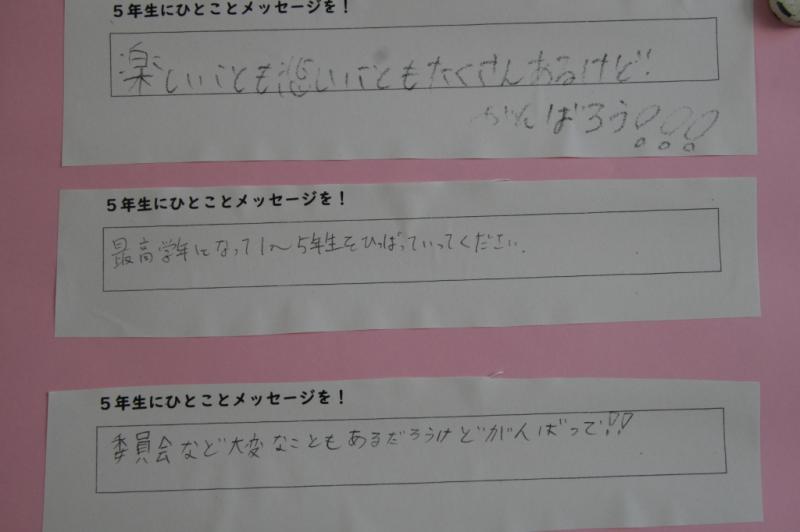 5年生にひとことメッセージを!
楽しいことも悲しいこともたくさんあるけど!
がんばろう!!!
5年生にひとことメッセージを!
最高学年になって1〜5年生をひっぱっていってください.
5年生にひとことメッセージを!
委員会など大変なこともあるだろうけどがんばって!!